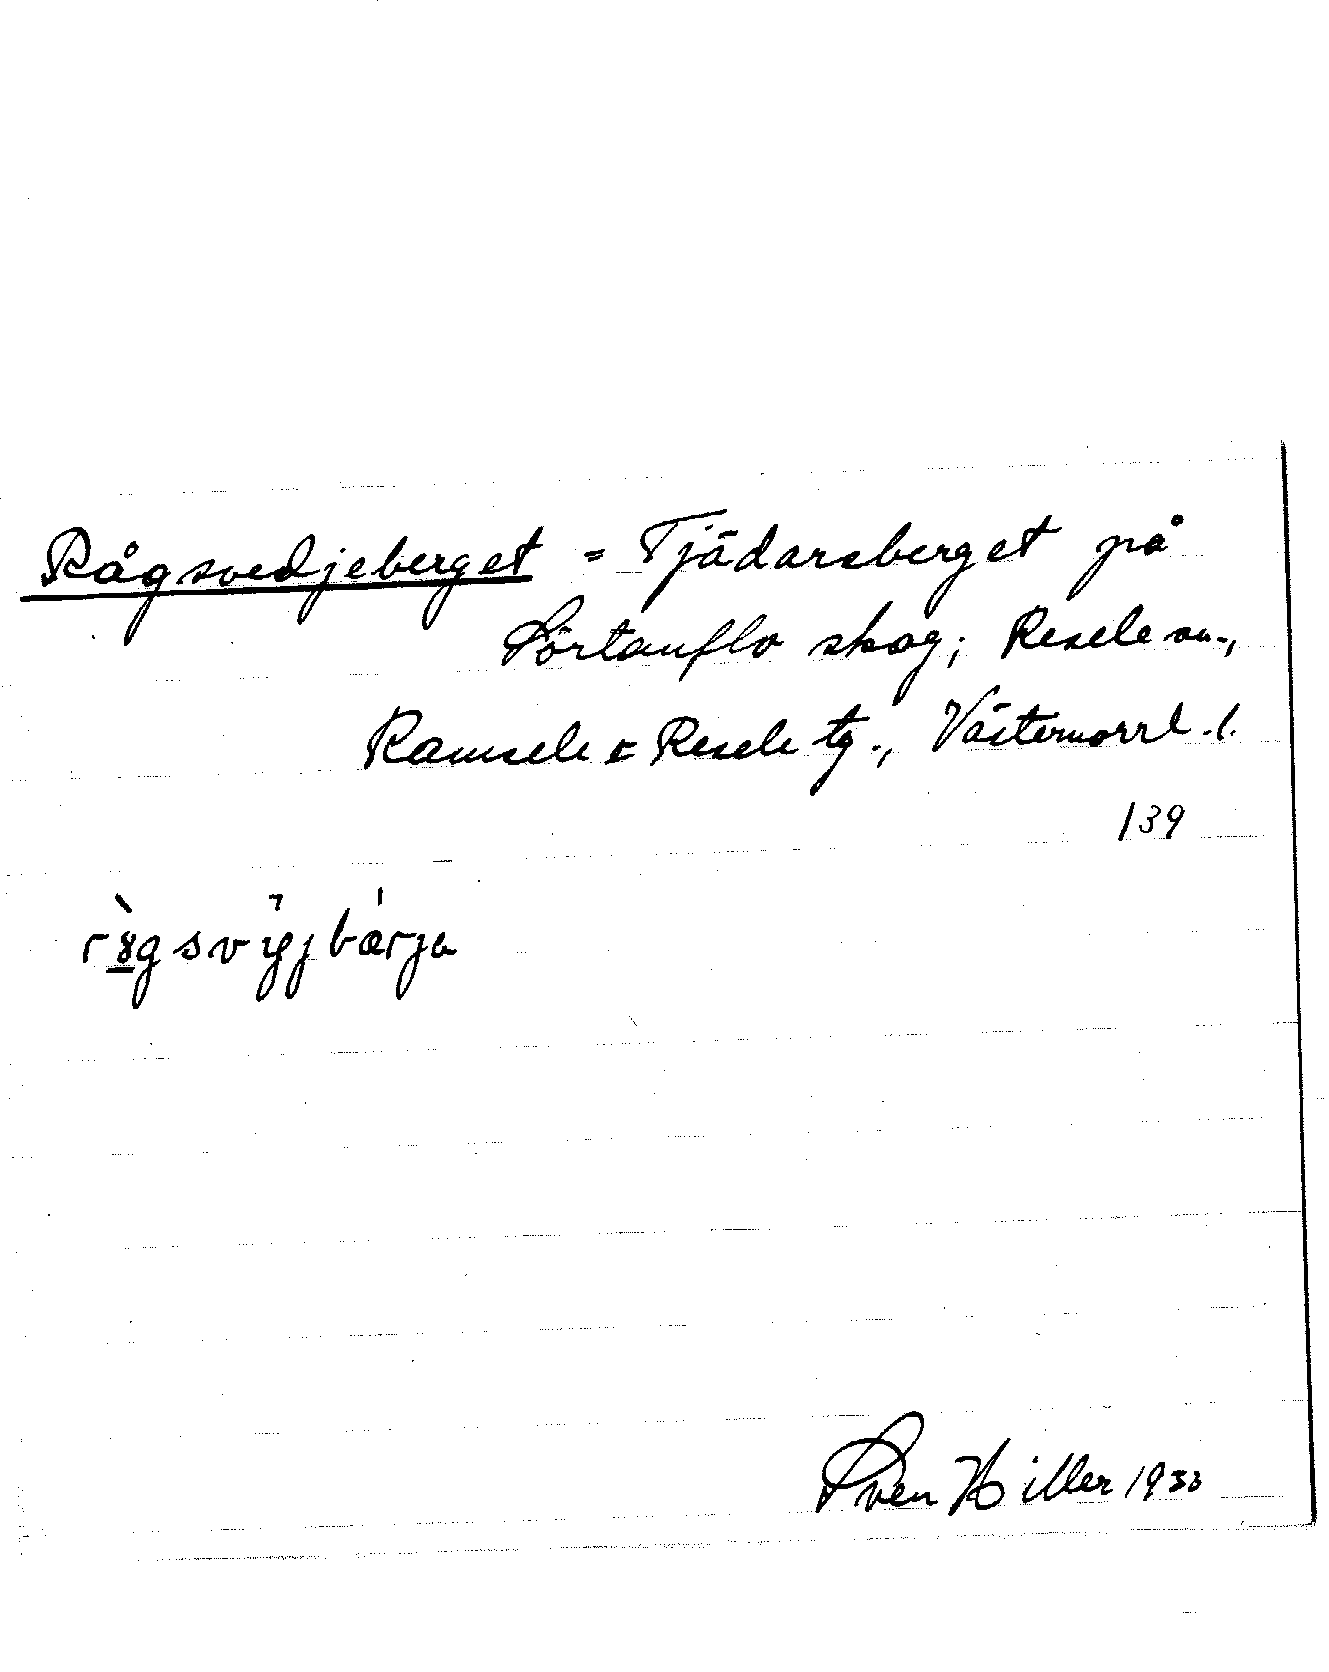 Rågsvedjeberget = Tjädarsberget på
Sörtanflo skog; Resele sn.,
Ramsele o Resele tg., Västernorrl. l.
139
Sven Hiller 1933